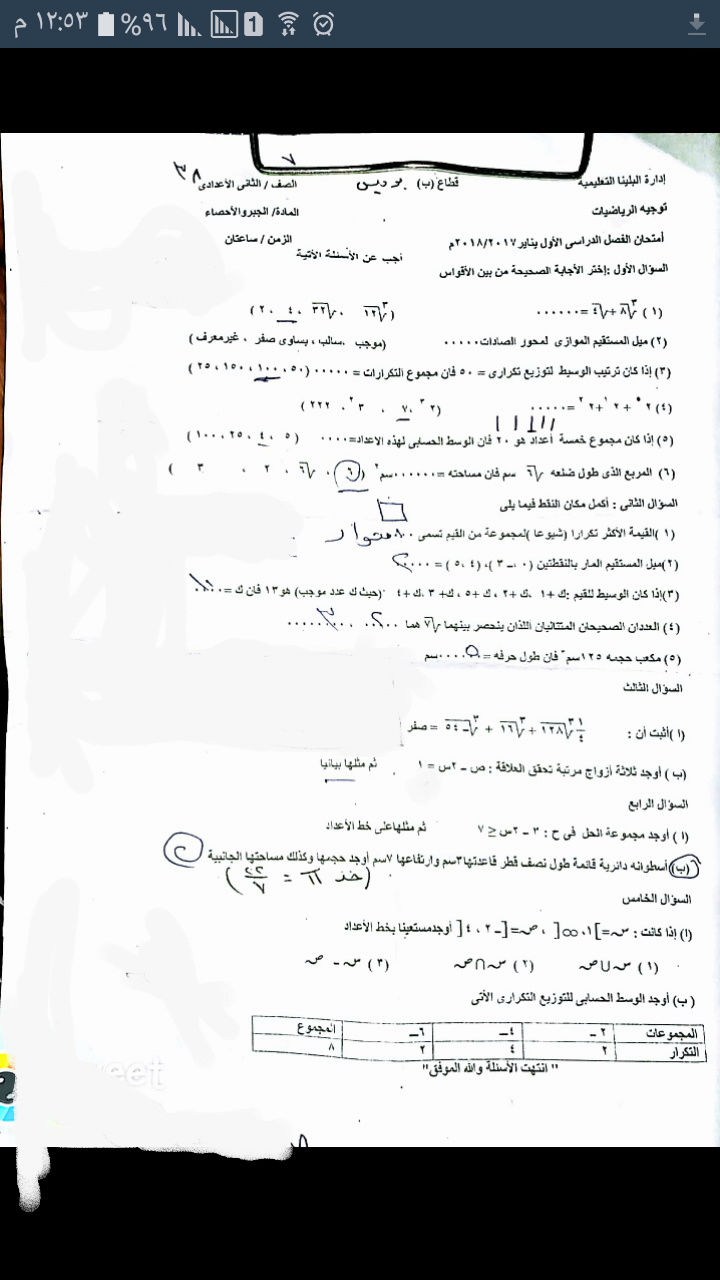 ١٢:٥٣ م ٩٦% 1
٧
إدارة البلينا التعليمية قطاع (ب) الصف / الثانى الأعدادى ٣٨
توجيه الرياضيات المادة/ الجبروالأحصاء
أمتحان الفصل الدراسى الأول يناير ٢٠١٨/٢٠١٧م الزمن / ساعتان
أجب عن الأسئلة الأتية
السؤال الأول :إختر الأجابة الصحيحة من بين الأقواس
(١) ∛٨ + √٤ = ٠٠٠٠٠٠ ( ∛١٢ ، √٣٢ ، ٤ ، ٢٠ )
(٢) ميل المستقيم الموازى لمحور الصادات٠٠٠٠٠ (موجب ،سالب ، يساوى صفر ، غيرمعرف )
(٣) إذا كان ترتيب الوسيط لتوزيع تكرارى = ٥٠ فان مجموع التكرارات = ٠٠٠٠٠ (٥٠ ، ١٠٠ ، ١٥٠ ، ٢٥ )
(٤) ٢⁰ + ٢¹ + ٢² = ٠٠٠٠٠ (٢³ ، ٧ ، ٣² ، ٢٢٢ )
(٥) إذا كان مجموع خمسة أعداد هو ٢٠ فان الوسط الحسابى لهذه الاعداد=٠٠٠٠ (٥ ، ٤ ، ٢٥ ، ١٠٠ )
(٦) المربع الذى طول ضلعه √٦ سم فان مساحته =٠٠٠٠٠٠سم² (٦ ، √٦ ، ٢ ، ٣ )
السؤال الثانى : أكمل مكان النقط فيما يلى
(١ )القيمة الأكثر تكرارا (شيوعا )لمجموعة من القيم تسمى
(٢)ميل المستقيم المار بالنقطتين (٠ ،ــ ٣ )، (٤ ،٥ ) =
(٣)إذا كان الوسيط للقيم :ك +١ ،ك +٢ ، ك +٥ ، ك+ ٣ ،ك +٤ (حيث ك عدد موجب) هو١٣ فان ك =
(٤) العددان الصحيحان المتتاليان اللذان ينحصر بينهما √٧ هما ٢ ٣
(٥) مكعب حجمه ١٢٥سم³ فان طول حرفه = ٥ سم
السؤال الثالث
(ا )أثبت أن : ١/٤ ∛١٢٨ + ∛١٦ + ∛ــ٥٤ = صفر
(ب ) أوجد ثلاثة أزواج مرتبة تحقق العلاقة : ص ــ ٢س = ١ ثم مثلها بيانيا
السؤال الرابع
(ا ) أوجد مجموعة الحل فى ح : ٣ ــ ٢س ≥ ٧ ثم مثلهاعلى خط الأعداد
(ب) أسطوانه دائرية قائمة طول نصف قطر قاعدتها٣سم وارتفاعها ٧سم أوجد حجمها وكذلك مساحتها الجانبية
(خذ π = ٢٢/٧ )
السؤال الخامس
(ا) إذا كانت : س=]١ ، ∞[ ، ص=[ــ ٢ ، ٤ [ أوجدمستعينا بخط الأعداد
(١ ) س∪ص (٢ ) س∩ص (٣ ) س ــ ص
(ب ) أوجد الوسط الحسابى للتوزيع التكرارى الأتى
المجموعات ٢ ــ ٤ــ ٦ــ المجموع
التكرار ٢ ٤ ٢ ٨
" انتهت الأسئلة والله الموفق"